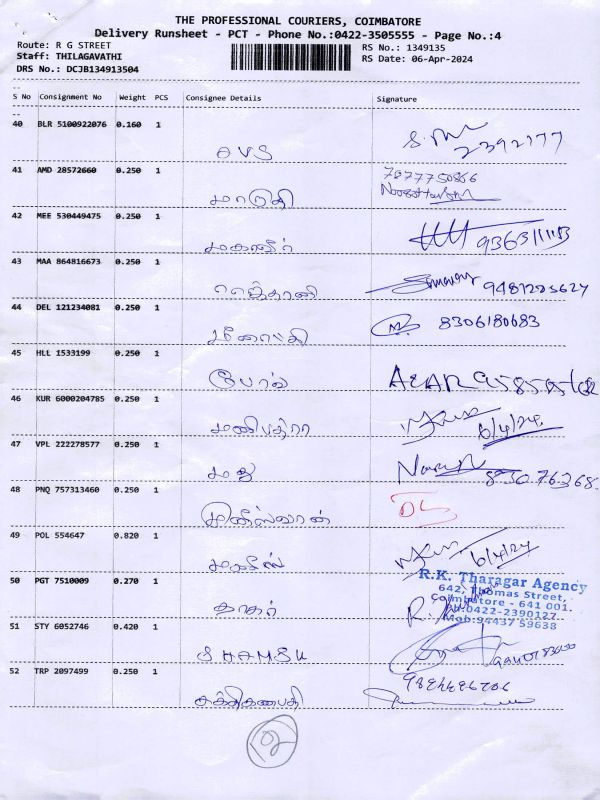 THE PROFESSIONAL COURIERS, COIMBATORE
Delivery Runsheet - PCT - Phone No.:0422-3505555 - Page No.:4
Route: R G STREET
RS No.: 1349135
Staff: THILAGAVATHI
RS Date: 06-Apr-2024
DRS No.: DCJB134913504
S No Consignment No Weight PCS Consignee Details Signature
40 BLR 5100922076 0.160 1
2392177
SVS
41 AMD 28572660 0.250 1
மாருதி
42 MEE 530449475 0.250 1
மகளிர்
43 MAA 864816673 0.250 1
44 DEL 121234081 0.250 1 8306180683
45 HLL 1533199 0.250 1
போல்
46 KUR 6000204785 0.250 1
6/4/24.
மணிபத்ரா
47 VPL 222278577 0.250 1
மஜு
48 PNQ 757313460 0.250 1
49 POL 554647 0.820 1
6/4/24
50 PGT 7510009 0.270 1
R.K. Tharagar Agency
642, Thomas Street,
Coimbatore - 641 001.
Ph:0422-2390127
Mob:94437 59638
தாகர்
51 STY 6052746 0.420 1
SHAMSU
52 TRP 2097499 0.250 1
சக்திகணபதி